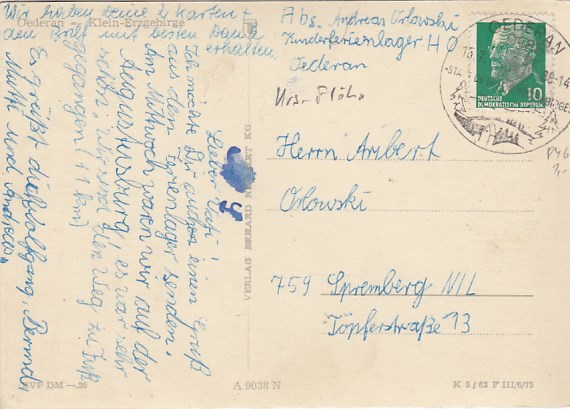 Wir haben Deine 2 Karten +
den Brief mit besten Dank
erhalten,
Oederan — Klein-Erzgebirge
Lieber Vati!
Ich möchte Dir auch einen Gruß
aus dem Ferienlager senden.
Am Mittwoch waren wir auf der
Augustusburg! es war sehr
schön, wir sind den Weg zu Fuß
gegangen (11 km)
Es grüßt dich Wolfgang, Bernd,
Mutti und Andreas.
Abs. Andreas Orlowski
Kinderferienlager H O
Oederan
Krs. Flöha
OEDERAN
DEUTSCHE
DEMOKRATISCHE REPUBLIK
10
Herrn Aribert
Orlowski
759 Spremberg NIL
Töpferstraße 13
VERLAG ERHARD KG
EVP DM —.20
A 9038 N
K 5/62 F III/6/75